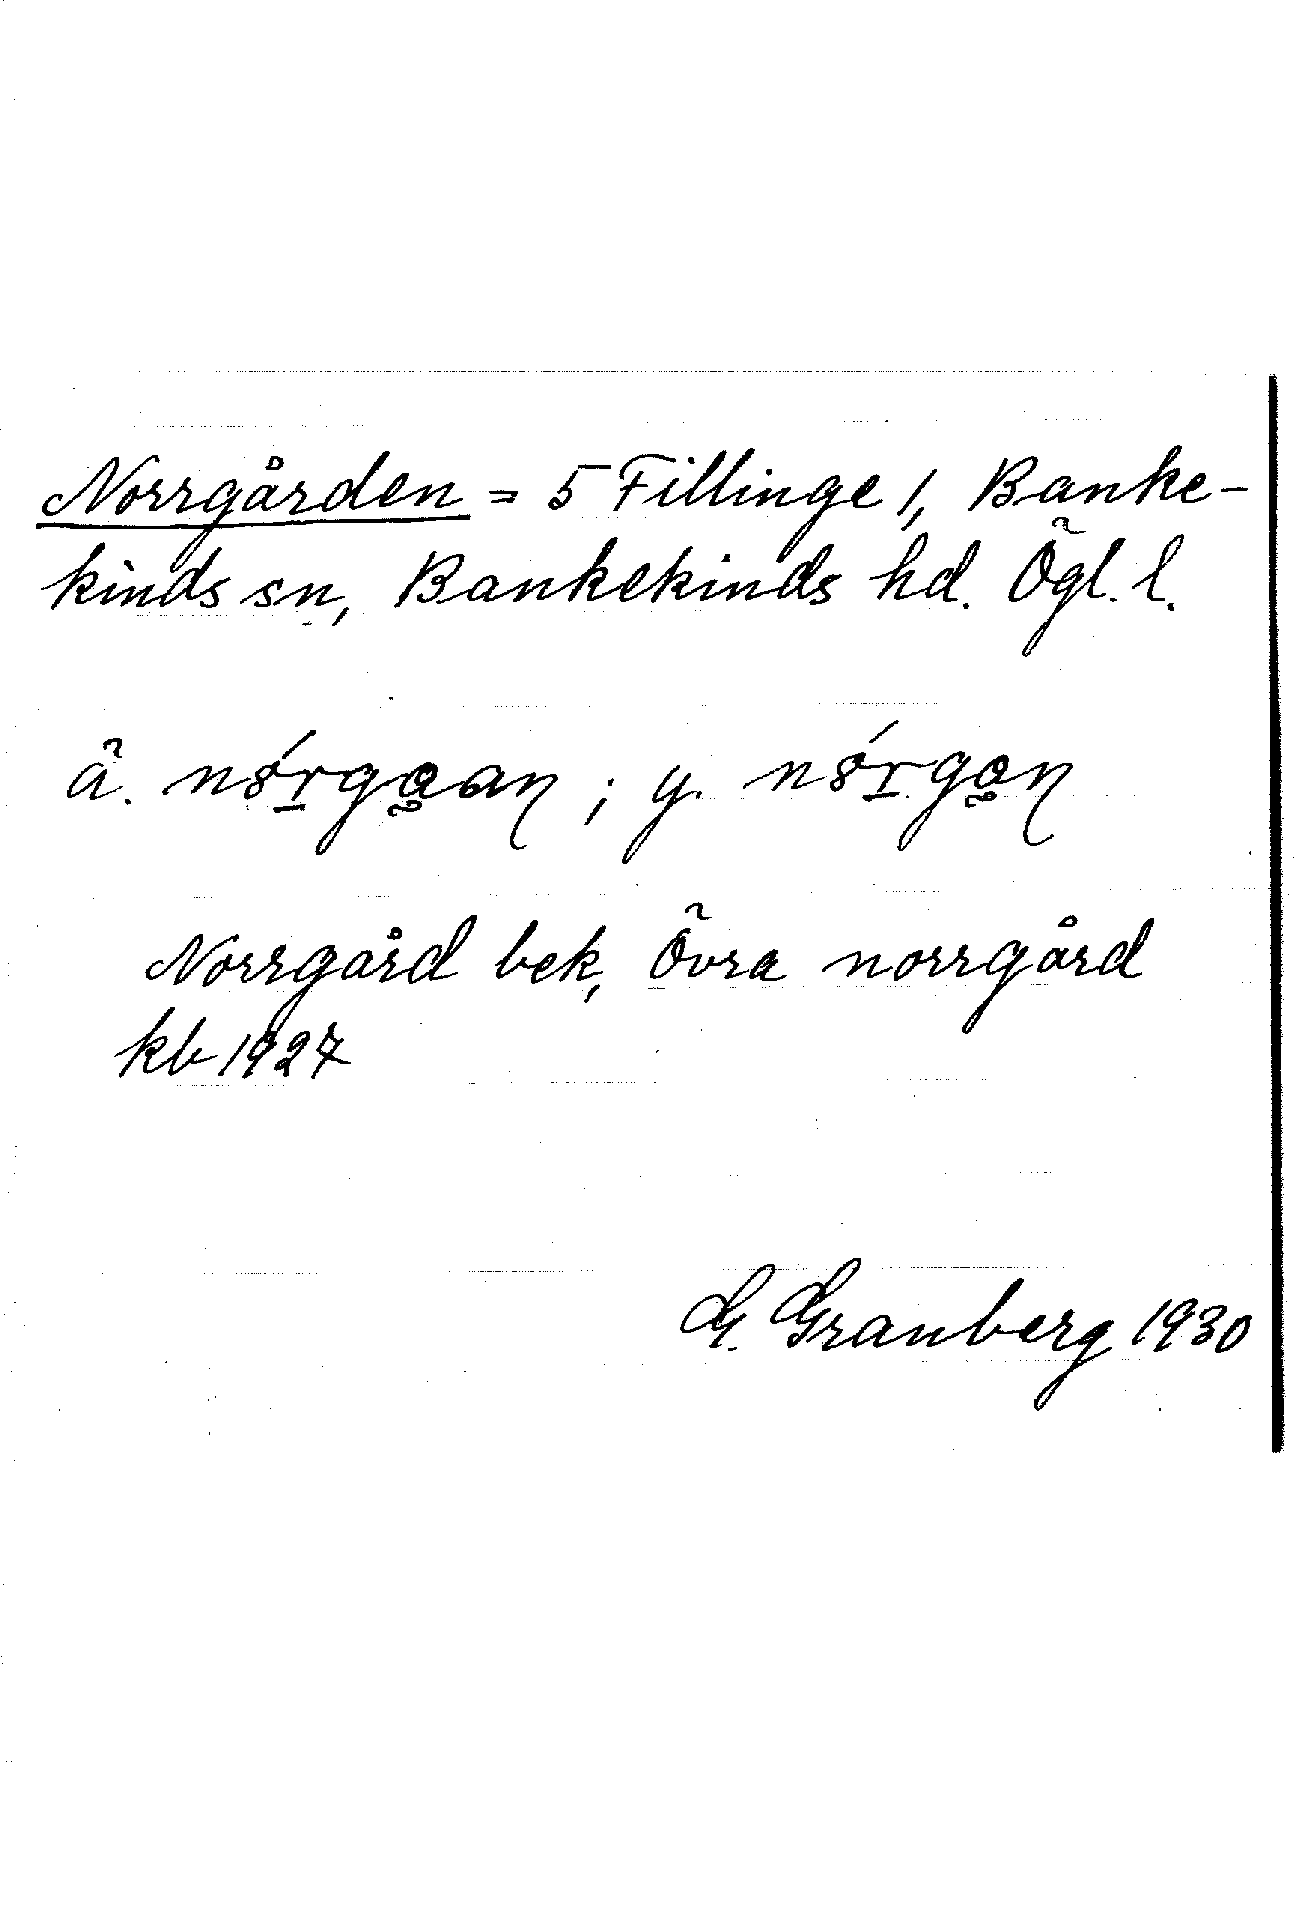 Norrgården = 5 Fillinge 1, Banke-
kinds sn, Bankekinds hd. Ögl. l.
ä. nǿrgǫan; y. nǿrgǫn
Norrgård bek, Övra norrgård
kb 1927
G. Granberg 1930